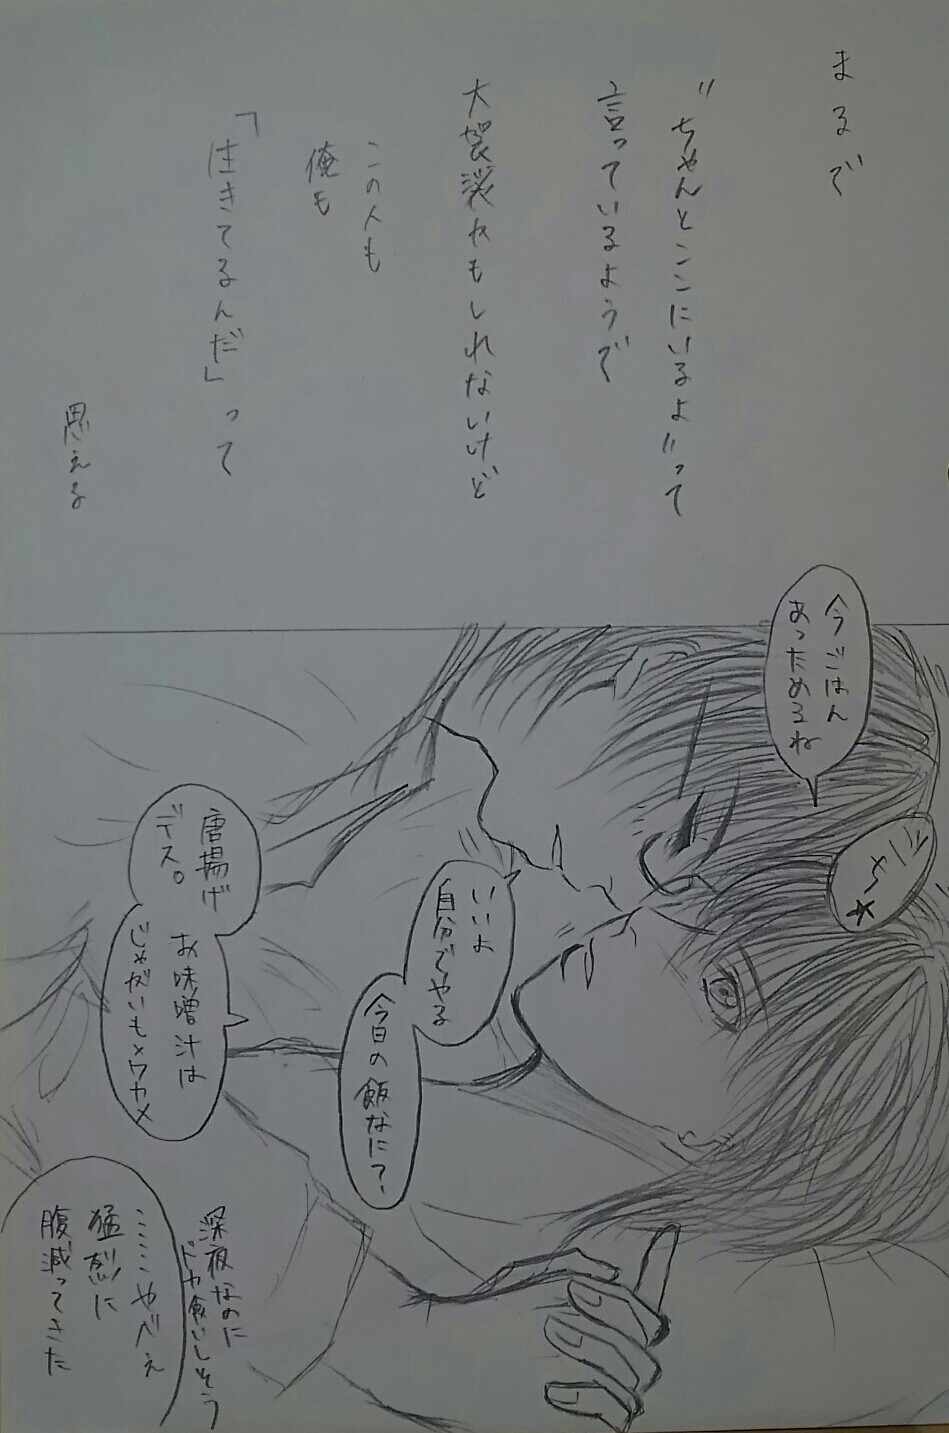 まるで
"ちゃんとここにいるよ"って
言っているようで
大袈裟かもしれないけど
この人も
俺も
「生きてるんだ」って
思える
今ごはん
あっためるね
いいよ
自分でやる
今日の飯なに?
唐揚げ
デス。
お味噌汁は
じゃがいも×ワカメ
深夜なのに
ドカ食いしそう
……やべぇ
猛烈に
腹減ってきた